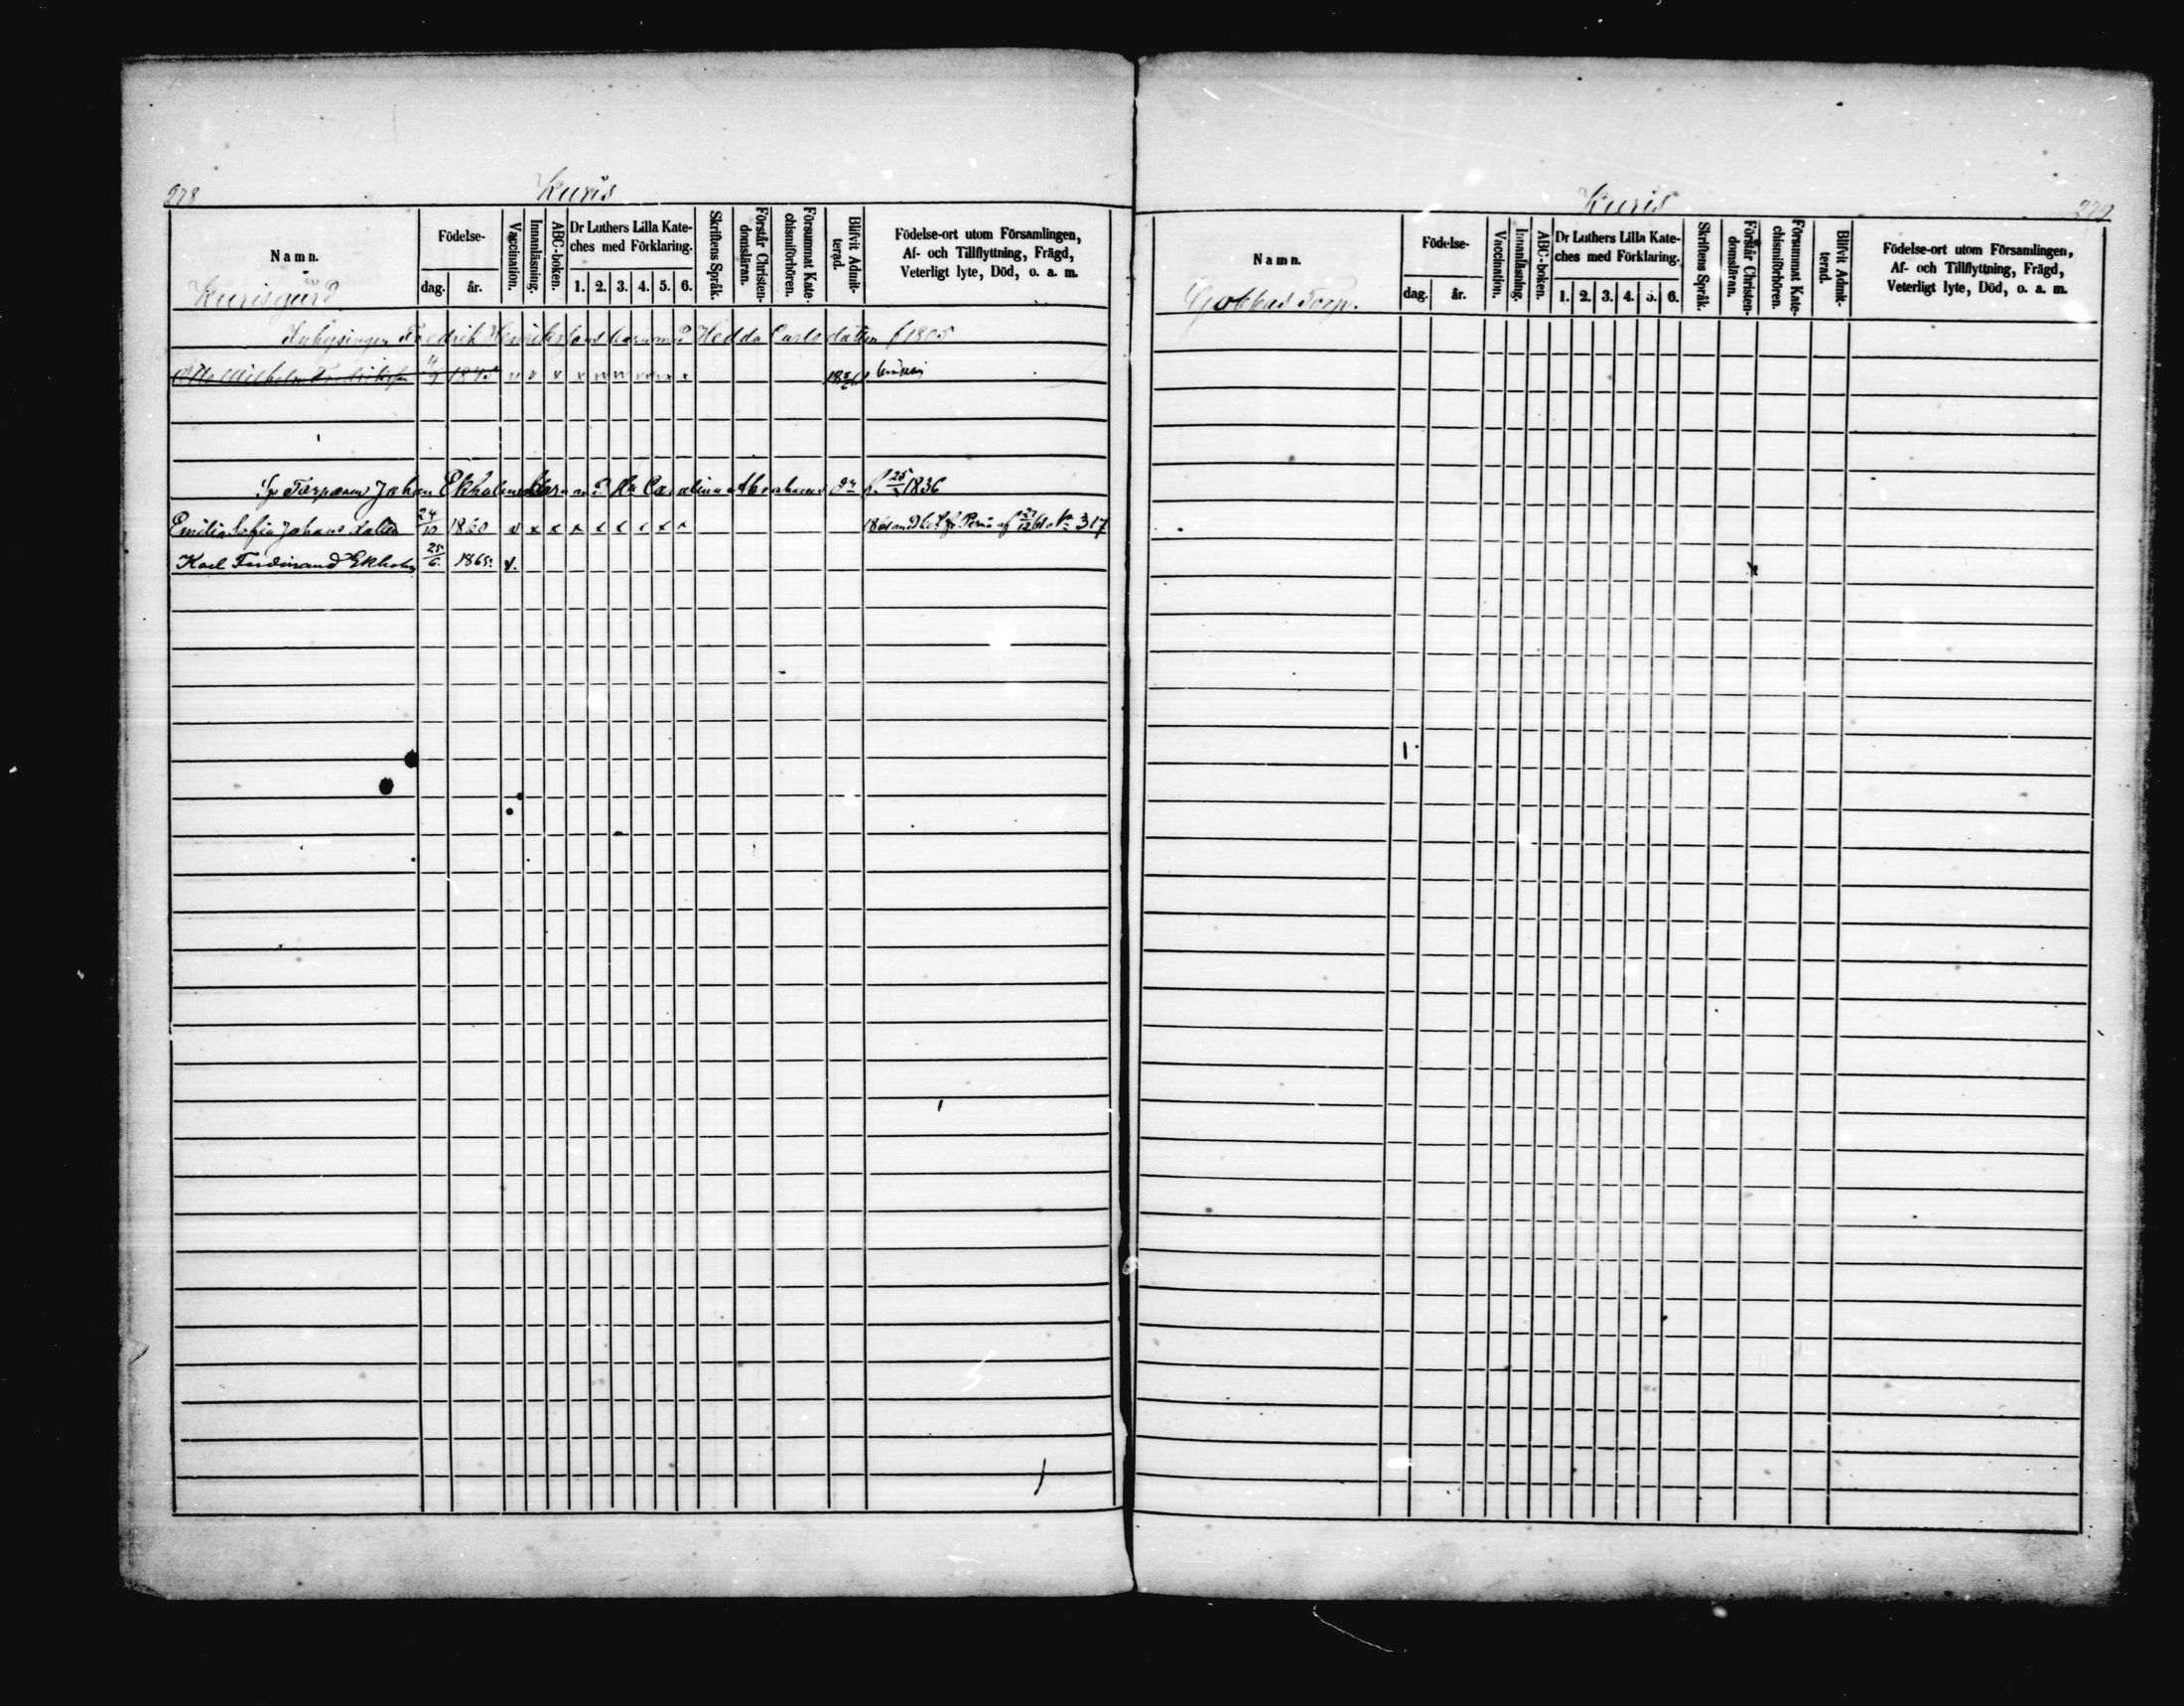 278
Kuris
Namn.
Födelse-
dag.
år.
Vaccination.
Innanläsning.
ABC-boken.
Dr Luthers Lilla Kate-
ches med Förklaring.
1. 2. 3. 4. 5. 6.
Skriftens Språk.
Förstår Christen-
domsläran.
Försummat Kate-
chismiförhören.
Blifvit Admit-
terad.
Födelse-ort utom Församlingen,
Af- och Tillflyttning, Frägd,
Veterligt lyte, Död, o. a. m.
Kurisgård
Fredrik Henrikssons barn m. Hedda Carlsdotter f 1805
1845 v v x v
Torparen Johan Ekholms barn m. Carolina Abrahams dr f. 25 1836
Emilia Sofia Johansdotter 24/10 1860 v x x x x x x x x 1861 No 317
Karl Ferdinand Ekholm 25/6 1865. v.
Kuris
279
Namn.
Födelse-
dag.
år.
Vaccination.
Innanläsning.
ABC-boken.
Dr Luthers Lilla Kate-
ches med Förklaring.
1. 2. 3. 4. 5. 6.
Skriftens Språk.
Förstår Christen-
domsläran.
Försummat Kate-
chismiförhören.
Blifvit Admit-
terad.
Födelse-ort utom Församlingen,
Af- och Tillflyttning, Frägd,
Veterligt lyte, Död, o. a. m.
Gobbas Torp.